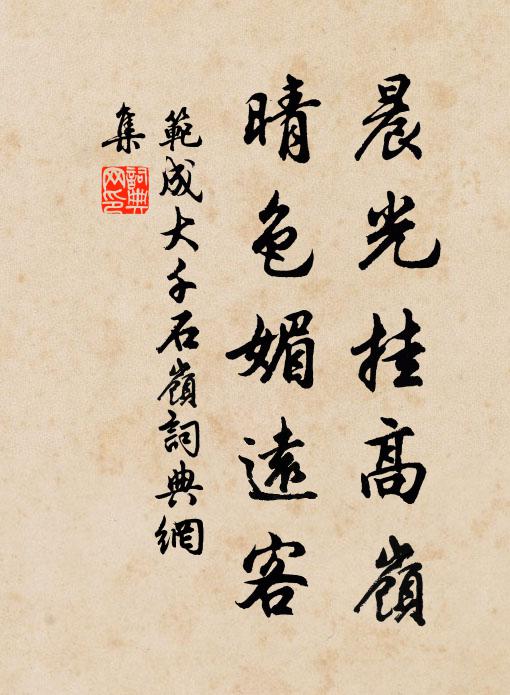 晨光挂高嶺
晴色媚遠客
範成大千石嶺詞典網
集
詞典
网印